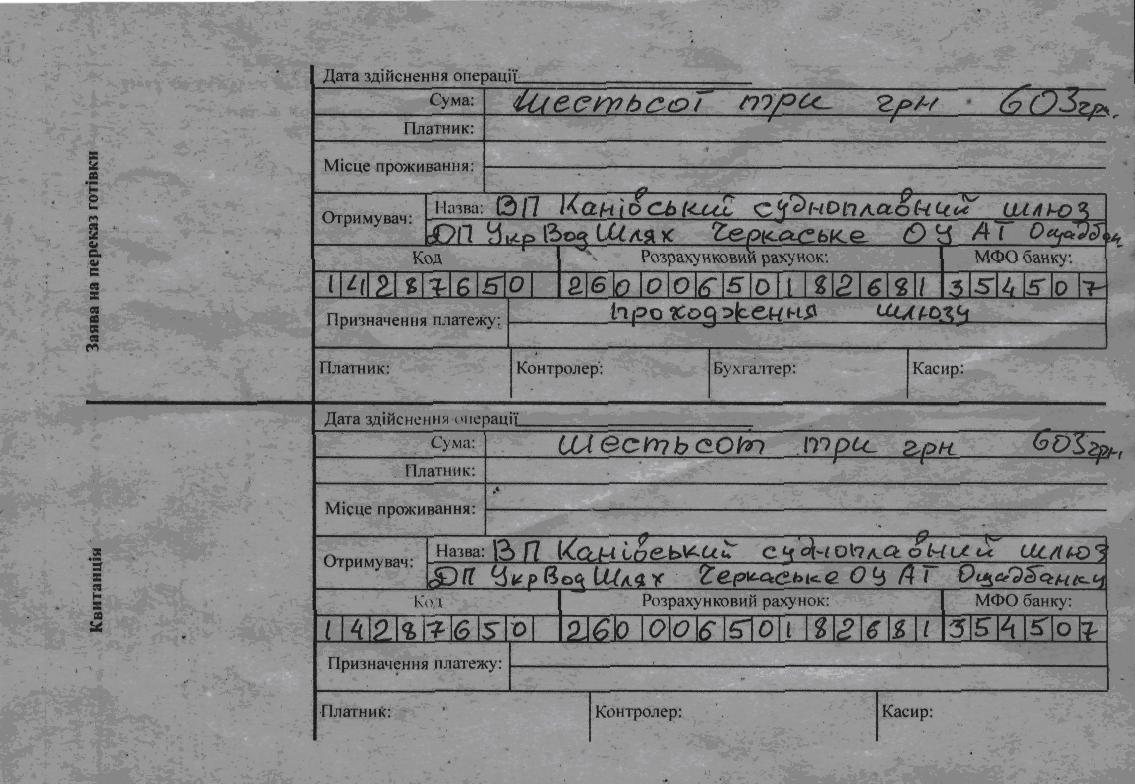 Заява на переказ готівки
Дата здійснення операції
Сума: Шестьсот три грн 603грн.
Платник:
Місце проживання:
Отримувач:
Назва: ВП Канівський судноплавний шлюз
ДП УкрВодШлях Черкаське ОУ АТ Ощадбан
Код Розрахунковий рахунок: МФО банку:
14287650 26000650182681 354507
Призначення платежу: проходження шлюзу
Платник: Контролер: Бухгалтер: Касир:
Квитанція
Дата здійснення операції
Сума: Шестьсот три грн 603грн.
Платник:
Місце проживання:
Отримувач:
Назва: ВП Канівський судноплавний шлюз
ДП УкрВодШлях Черкаське ОУ АТ Ощадбанку
Код Розрахунковий рахунок: МФО банку:
14287650 26000650182681 354507
Призначення платежу:
Платник: Контролер: Касир: